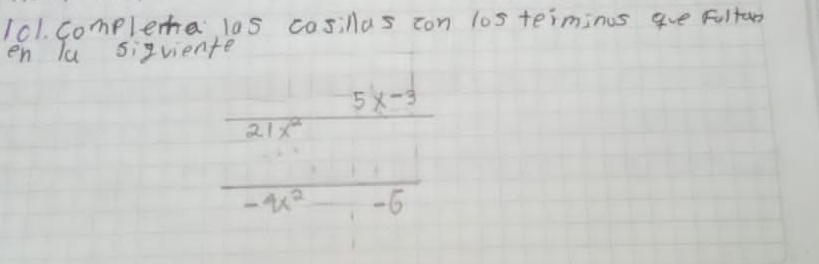 101. Complemta las casillas con los terminos que Faltan
en la siguiente
5x-3
21x²
-9x² -6